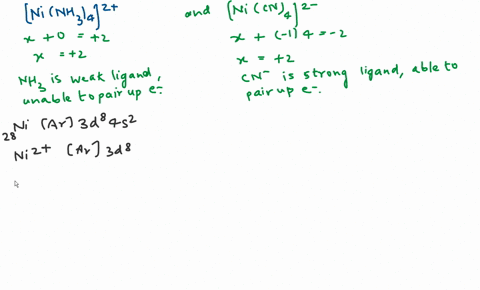 [Ni(NH3)4]2+ and [Ni(CN)4]2-
x + 0 = +2
x = +2
NH3 is weak ligand,
unable to pair up e-.
x + (-1)4 = -2
x = +2
CN- is strong ligand, able to
pair up e-.
28Ni [Ar] 3d8 4s2
Ni2+ [Ar] 3d8